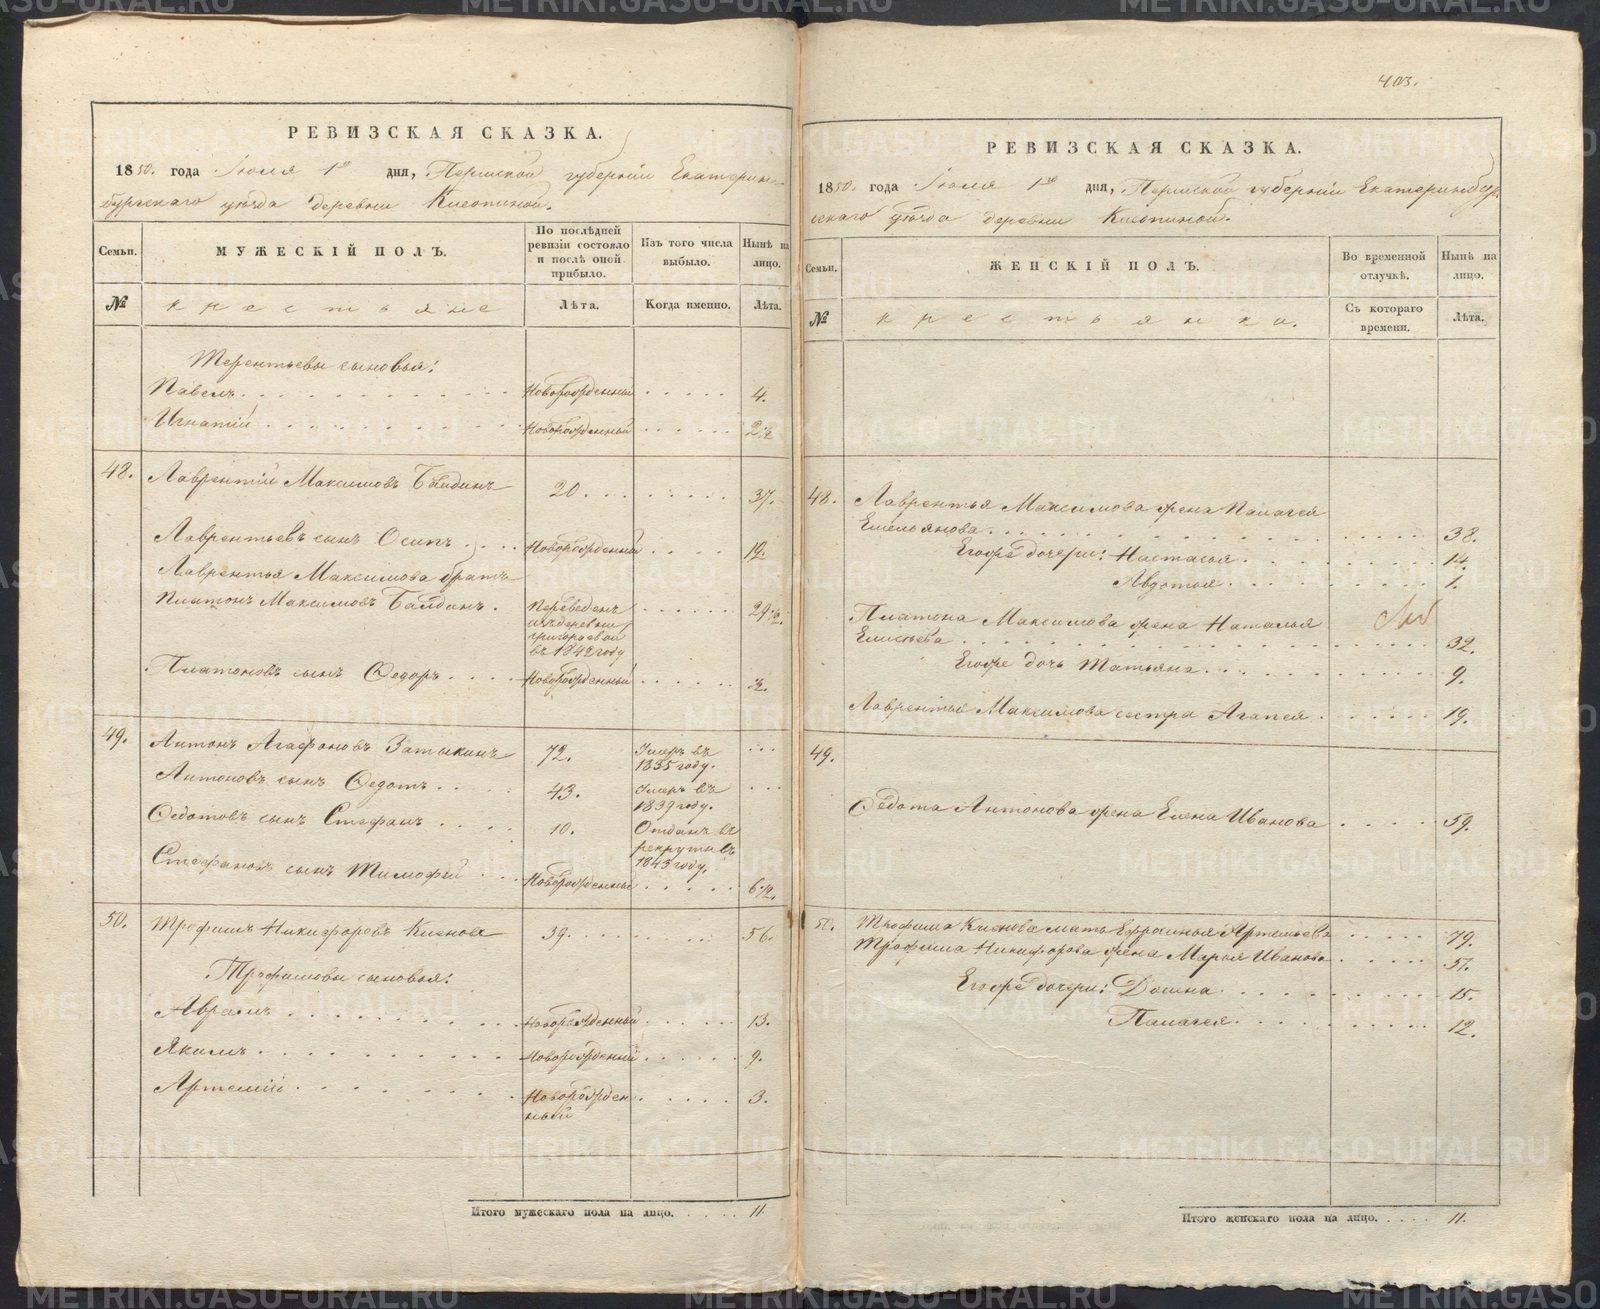 403.
РЕВИЗСКАЯ СКАЗКА.
1850. года Июля 1го дня, Пермской губернiи Екатерин-
бургскаго уѣзда деревни
Семьи.
МУЖЕСКIЙ ПОЛЪ.
По послѣдней
ревизiи состояло
и послѣ оной
прибыло.
Изъ того числа
выбыло.
Нынѣ на
лицо.
№
крестьяне
Лѣта.
Когда именно.
Лѣта.
Терентьевы сыновья:
Павелъ. Новорожденный 4.
Игнатiй Новорожденный 2 1/2
48. Лаврентiй Максимовъ Байдинъ 20. 37.
Лаврентьевъ сынъ Осипъ Новорожденный 12.
Лаврентья Максимова братъ
Платонъ Максимовъ Байдинъ. Переведенъ 29 1/2.
изъ деревни
григорьевой
въ 1842 году
Платоновъ сынъ Федоръ Новорожденный
49. Антонъ Агафоновъ Затыкинъ 72. Умеръ въ
1835 году.
Антоновъ сынъ Федотъ 43. Умеръ въ
1839 году.
Федотовъ сынъ Стефанъ 10. Отданъ въ
рекруты въ
1843 году.
Стефановъ сынъ Тимофей Новорожденный 6 1/2.
50. Трофимъ Никифоровъ 39. 56.
Трофимовы сыновья:
Аврамъ Новорожденный 13.
Якимъ Новорожденный 9.
Артемiй Новорожден 3.
ный
Итого мужескаго пола на лицо. 11.
РЕВИЗСКАЯ СКАЗКА.
1850. года Июля 1го дня, Пермской губернiи Екатеринбур-
скаго уѣзда деревни
Семьи.
ЖЕНСКIЙ ПОЛЪ.
Во временной
отлучкѣ.
Нынѣ на
лицо.
№
крестьянки.
Съ котораго
времени.
Лѣта.
48. Лаврентья Максимова жена Палагея
Емельянова 38.
Егоже дочери: Настасья 14.
Авдотья 1.
Платона Максимова жена Наталья
Елисѣева 32.
Егоже дочь Татьяна 9.
Лаврентья Максимова сестра Агапея 19.
49.
Федота Антонова жена Елена Иванова 59.
50. Трофима мать Ефросинья Артемьева 79.
Трофима Никифорова жена Марья Иванова 51.
Егоже дочери: Домна 15.
Палагея 12.
Итого женскаго пола на лицо. 11.
METRIKI.GASO-URAL.RU